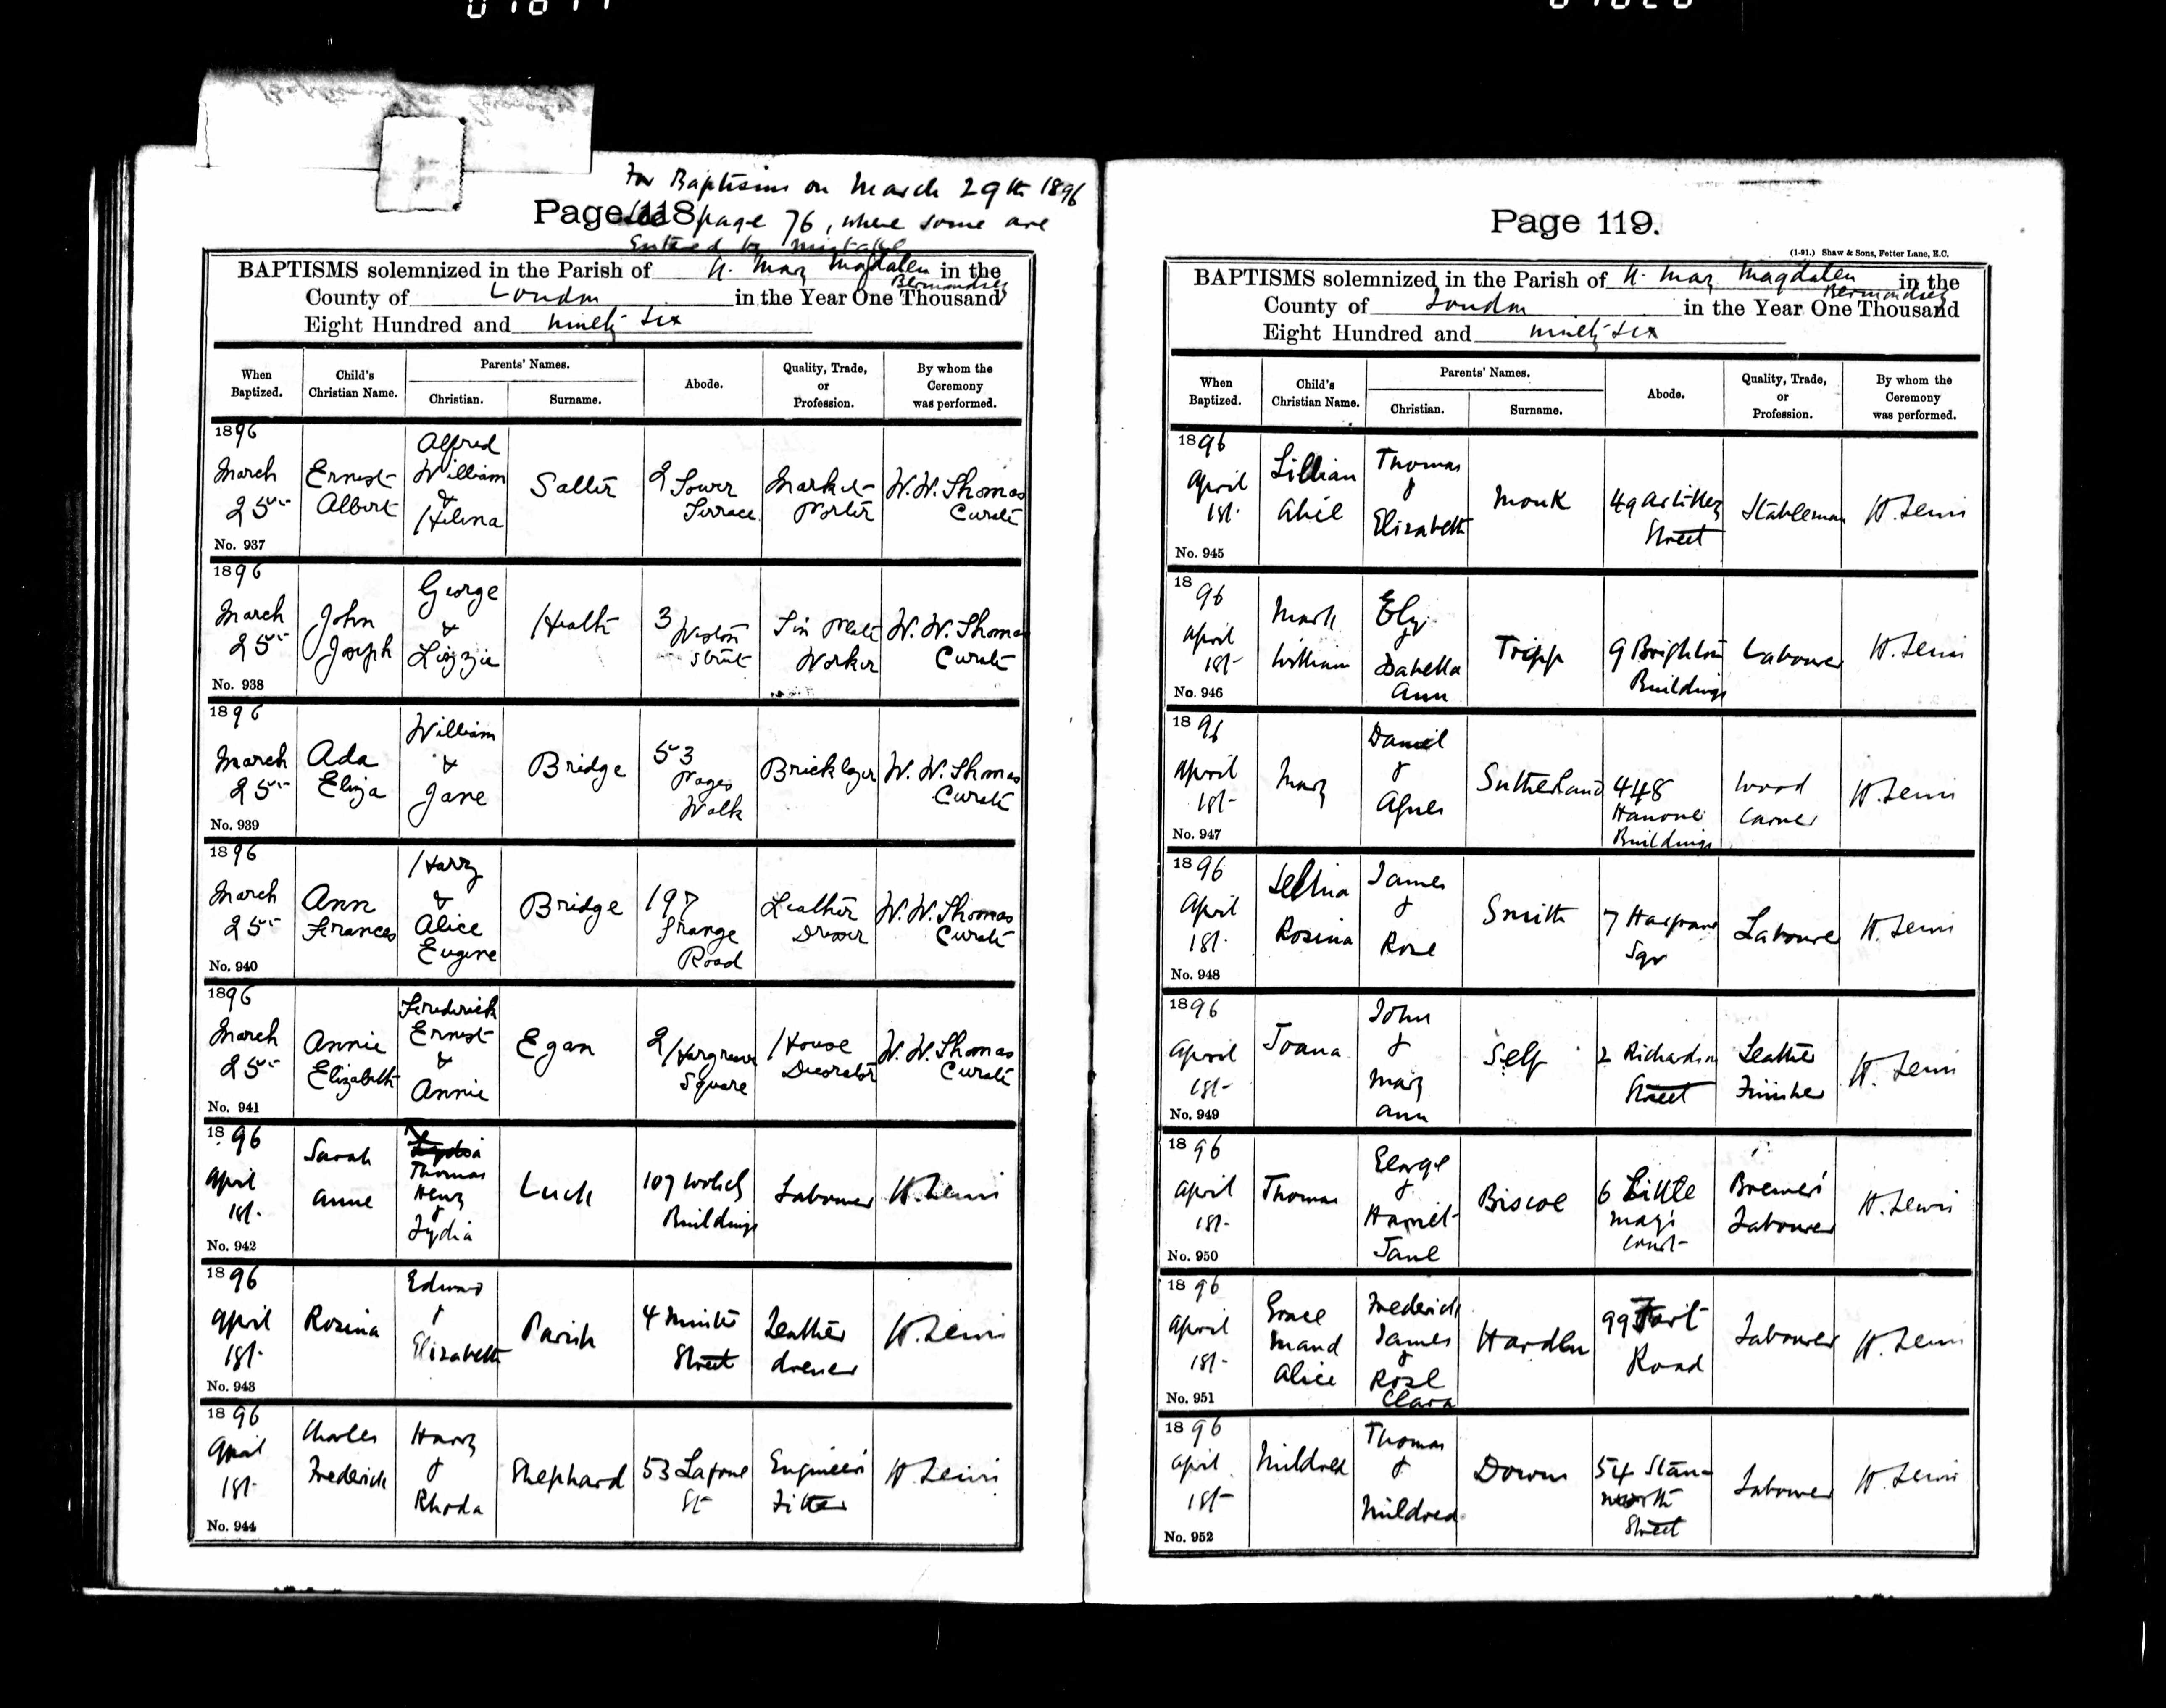 For Baptisms on March 29th 1896
Page 118 page 76, where some are
Entered by mistake
BAPTISMS solemnized in the Parish of St. Mary Magdalen in the
Bermondsey
County of London in the Year One Thousand
Eight Hundred and ninety six
When Baptized. Child's Christian Name. Parents' Names. Christian. Surname. Abode. Quality, Trade, or Profession. By whom the Ceremony was performed.
1896 March 25 Ernest Albert Alfred William & Helena Salter 2 Tower Terrace Market Porter W. W. Thomas Curate
No. 937
1896 March 25 John Joseph George & Lizzie Heath 3 Weston Street Tin Plate Worker W. W. Thomas Curate
No. 938
1896 March 25 Ada Eliza William & Jane Bridge 53 Pages Walk Bricklayer W. W. Thomas Curate
No. 939
1896 March 25 Ann Frances Harry & Alice Eugene Bridge 197 Grange Road Leather Dresser W. W. Thomas Curate
No. 940
1896 March 25 Annie Elizabeth Frederick Ernest & Annie Egan 2 Hargrave Square House Decorator W. W. Thomas Curate
No. 941
1896 April 1st Sarah Anne Lydia Thomas Henry & Lydia Luck 107 Buildings Labourer H. Lewis
No. 942
1896 April 1st Rosina Edward & Elizabeth Parish 4 Minter Street Leather dresser H. Lewis
No. 943
1896 April 1st Charles Frederick Harry & Rhoda Shephard 53 Lafone St Engineer's Fitter H. Lewis
No. 944
Page 119.
(1-91.) Shaw & Sons, Fetter Lane, E.C.
BAPTISMS solemnized in the Parish of St. Mary Magdalen in the
Bermondsey
County of London in the Year One Thousand
Eight Hundred and ninety six
When Baptized. Child's Christian Name. Parents' Names. Christian. Surname. Abode. Quality, Trade, or Profession. By whom the Ceremony was performed.
1896 April 1st Lillian Alice Thomas & Elizabeth Monk 49 Street Stableman H. Lewis
No. 945
1896 April 1st Mark William Ely & Isabella Ann Tripp 9 Brighton Buildings Labourer H. Lewis
No. 946
1896 April 1st Mary Daniel & Agnes Sutherland 448 Hanover Buildings Wood Carver H. Lewis
No. 947
1896 April 1st Rosina James & Rose Smith 7 Hargrave Sqr Labourer H. Lewis
No. 948
1896 April 1st Joana John & Mary Ann Self 2 Richardson Street Leather Finisher H. Lewis
No. 949
1896 April 1st Thomas George & Harriet Jane Biscoe 6 Little Mary's Court Brewer's Labourer H. Lewis
No. 950
1896 April 1st Grace Maud Alice Frederick James & Rose Clara Harden 99 Fort Road Labourer H. Lewis
No. 951
1896 April 1st Mildred Thomas & Mildred Down 54 Stanworth Street Labourer H. Lewis
No. 952